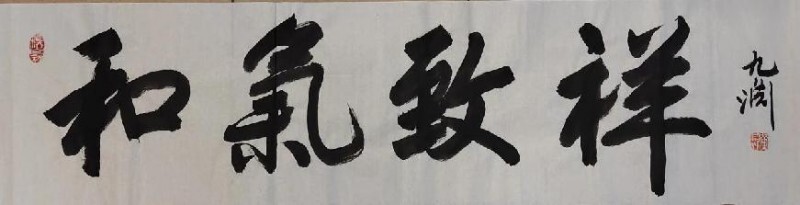 和氣致祥
九渊